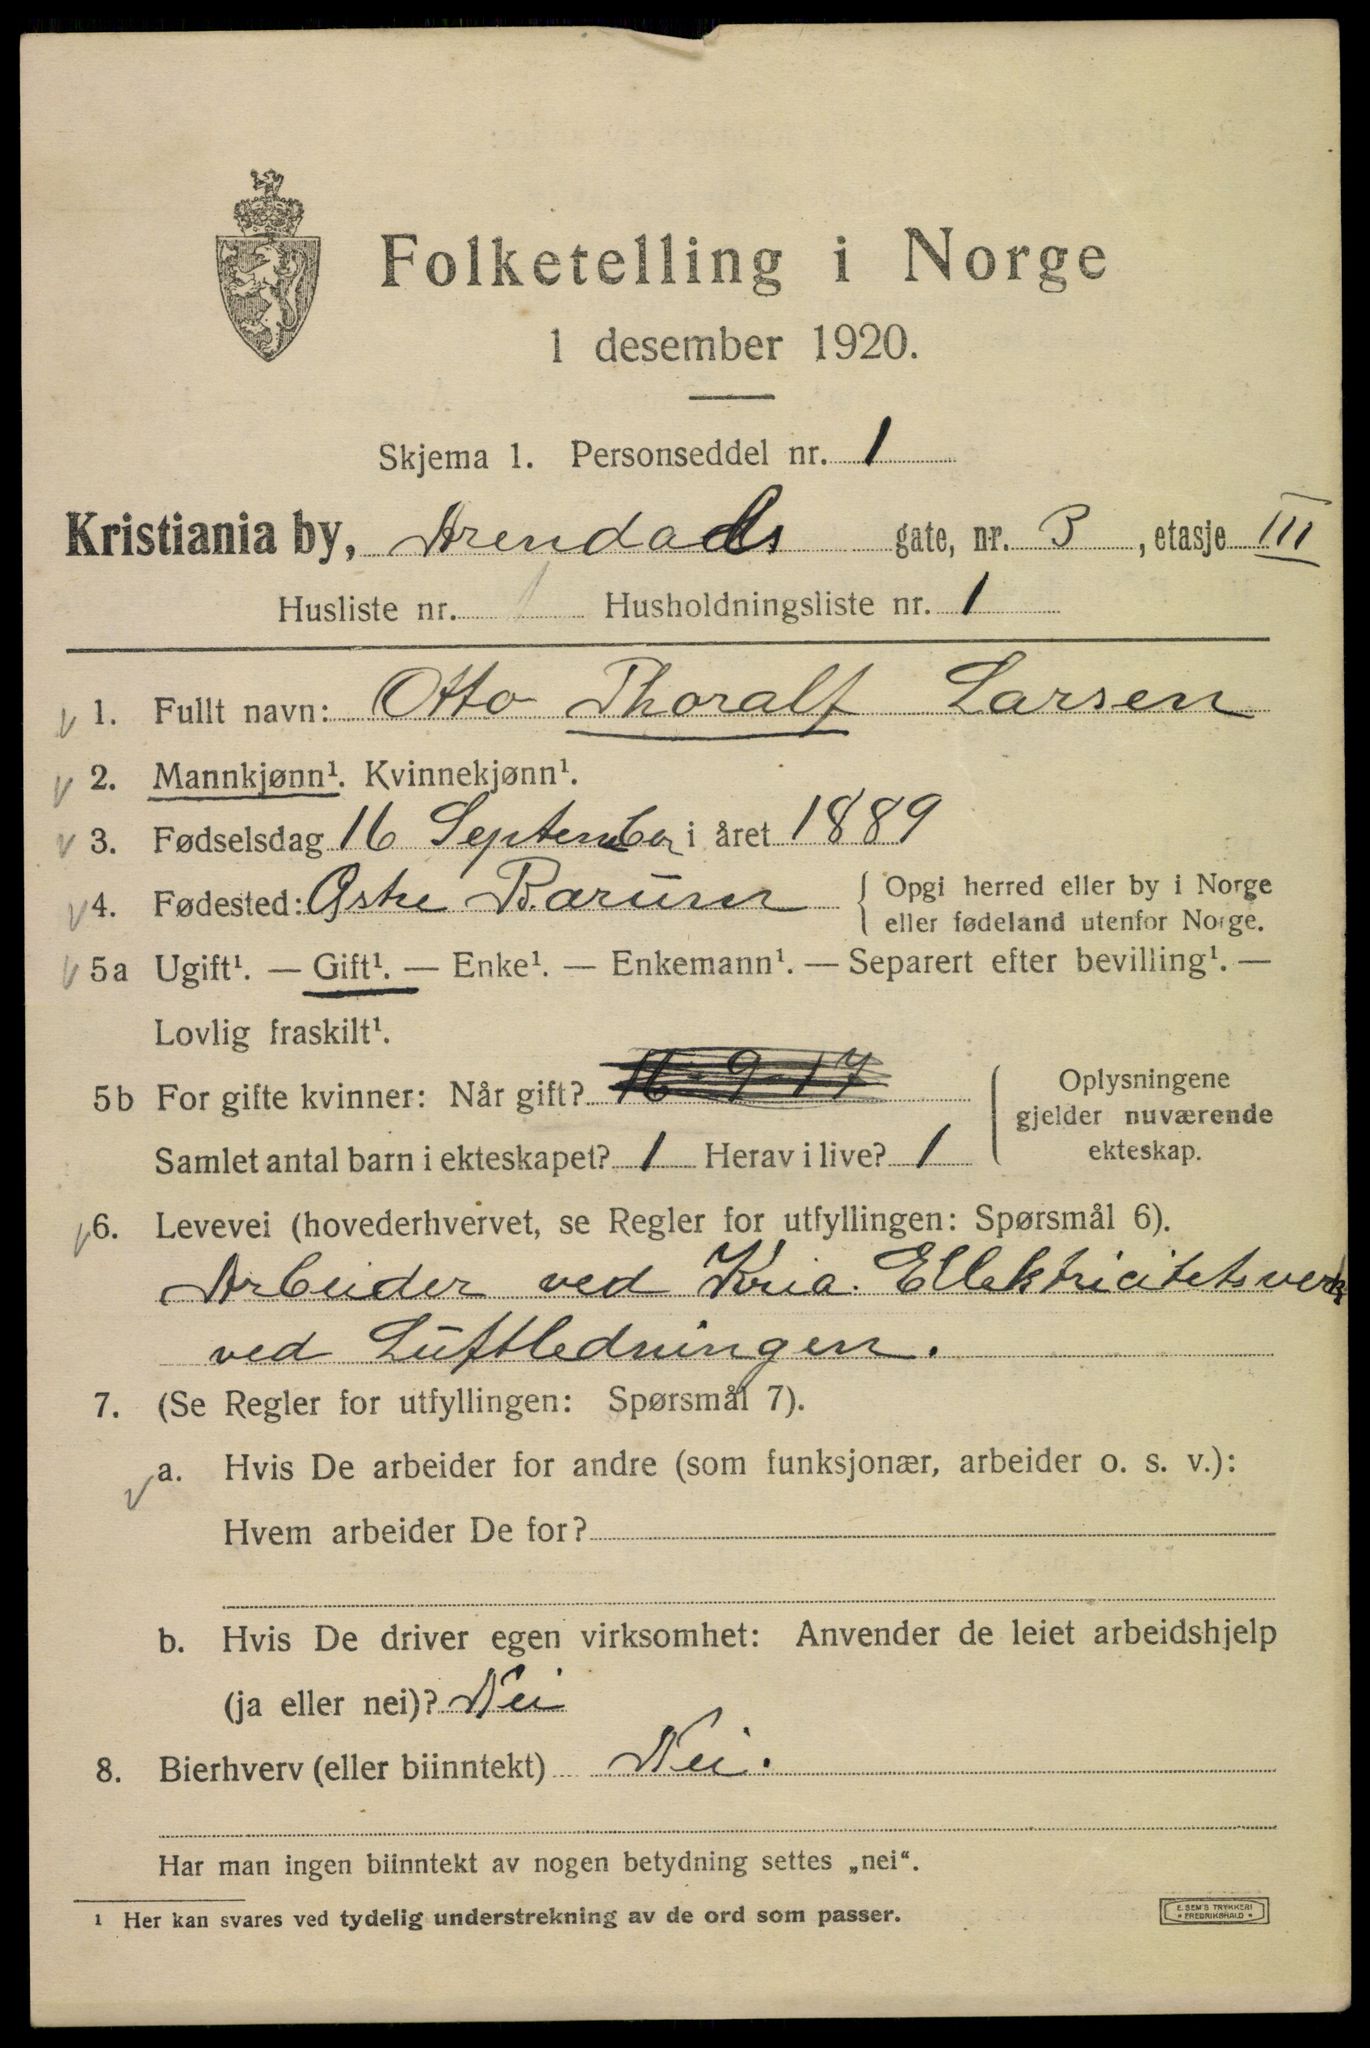 Folketelling i Norge
1 desember 1920.
Skjema 1. Personseddel nr. 1
Kristiania by, Arendals gate, nr. 3, etasje III
Husliste nr. 1 Husholdningsliste nr. 1
1. Fullt navn: Otto Thoralf Larsen
2. Mannkjønn¹. Kvinnekjønn¹.
3. Fødselsdag 16 September i året 1889
4. Fødested: Østre Bærum { Opgi herred eller by i Norge
eller fødeland utenfor Norge.
5a Ugift¹. — Gift¹. — Enke¹. — Enkemann¹. — Separert efter bevilling¹. —
Lovlig fraskilt¹.
5b For gifte kvinner: Når gift? 16-9-17
Samlet antal barn i ekteskapet? 1 Herav i live? 1
Oplysningene
gjelder nuværende
ekteskap.
6. Levevei (hovederhvervet, se Regler for utfyllingen: Spørsmål 6).
Arbeider ved Kria. Ellektricitetsverk
ved Luftledningen.
7. (Se Regler for utfyllingen: Spørsmål 7).
a. Hvis De arbeider for andre (som funksjonær, arbeider o. s. v.):
Hvem arbeider De for?
b. Hvis De driver egen virksomhet: Anvender de leiet arbeidshjelp
(ja eller nei)? Nei
8. Bierhverv (eller biinntekt) Nei.
Har man ingen biinntekt av nogen betydning settes „nei“.
¹ Her kan svares ved tydelig understrekning av de ord som passer.
E. SEM'S TRYKKERI
FREDRIKSHALD